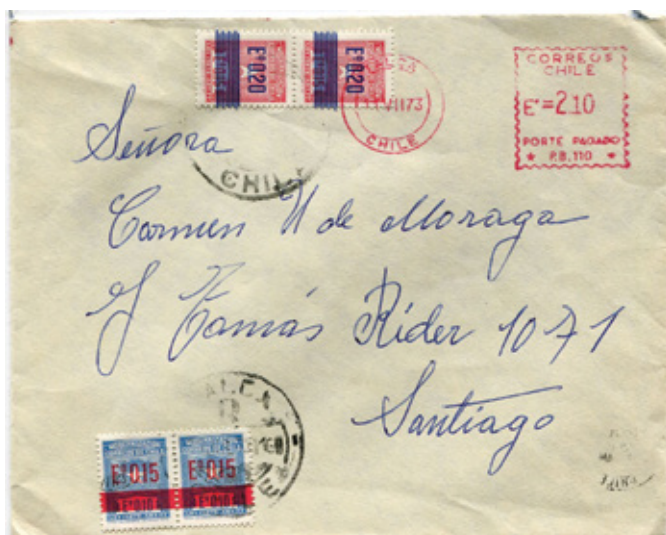 Eº 0.20 Eº 0.20
VII 73
CHILE
CORREOS
CHILE
Eº=2.10
PORTE PAGADO
P.B.110
Señora
CHILE
Carmen U de Moraga
J Tomás Rider 1071
Santiago
TALCA
Eº 0.15 Eº 0.15
Eº 0.10 Eº 0.10